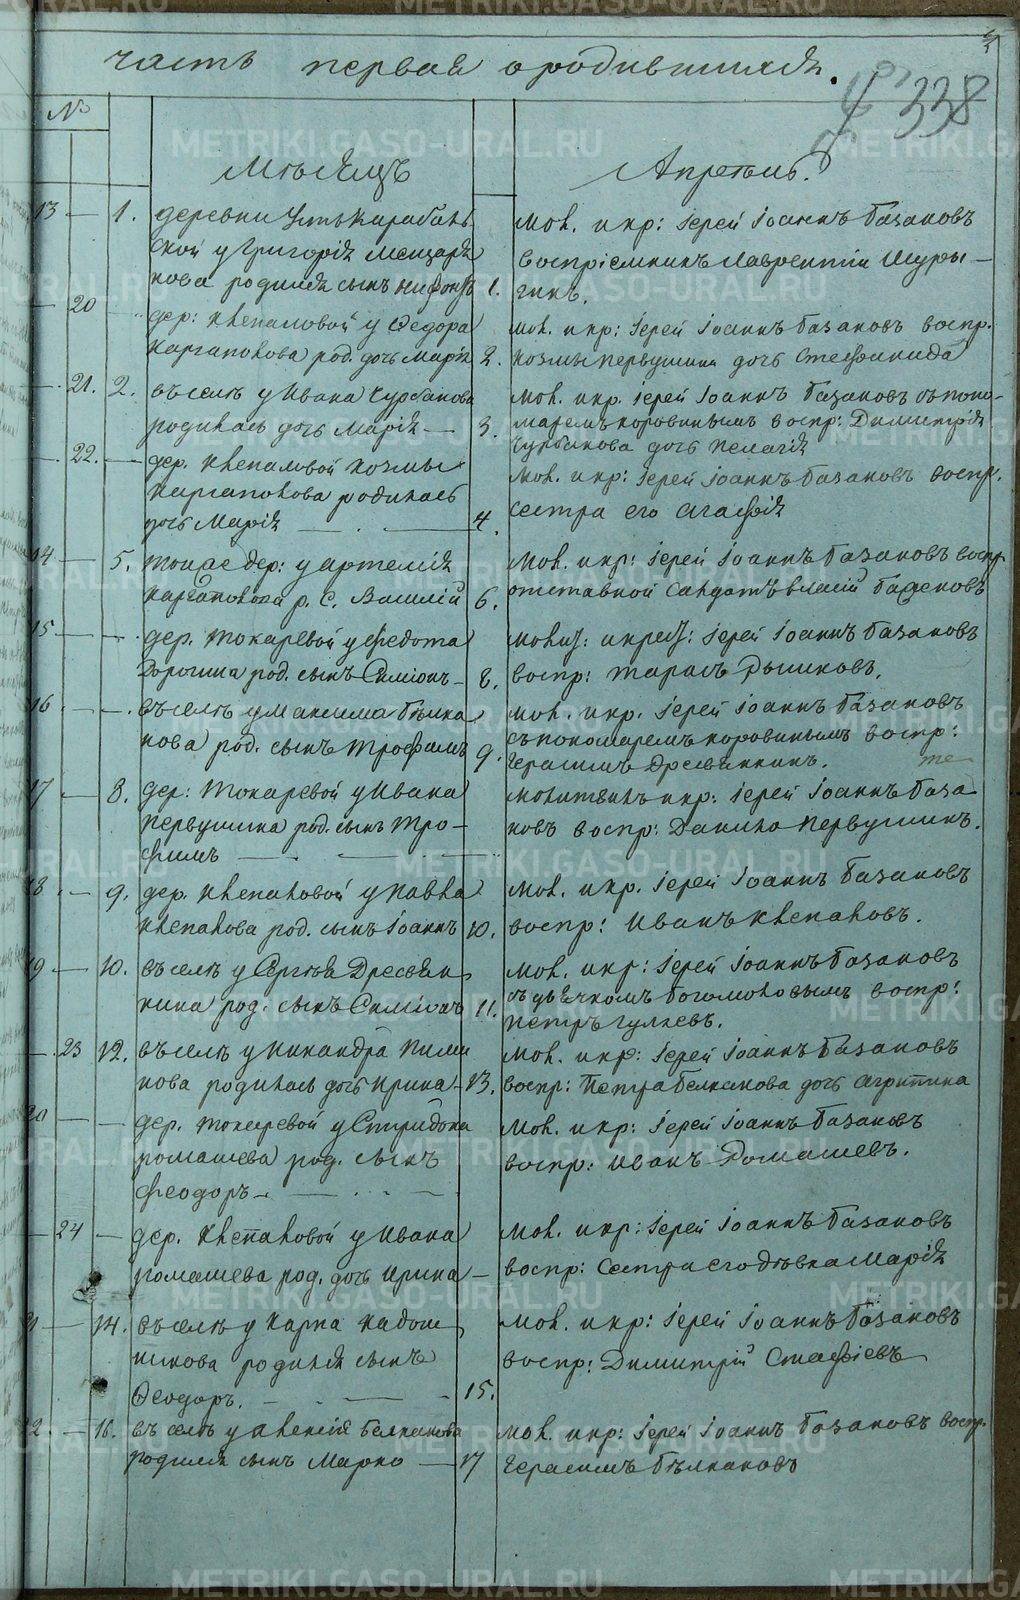 часть первая о родившихся.
338
№
Мѣсяцъ
Апрѣль.
13 — 1. деревни Усть Карабань
ской у Григорія Мещаря
кова родился сынъ Нифонтъ 1.
мол. и кр: Іерей Іоаннъ Базановъ
воспріемникъ Лаврентій Шуры–
гинъ.
20 дер: Клепаловой у Ѳедора
Каргаполова род. дочь Марія 2.
мол. и кр: Іерей Іоаннъ Базановъ воспр.
Козмы Первушина дочь Стефанида
21. 2. въ селѣ у Ивана Чурбанова
родилась дочь Марія — 3.
мол. и кр. Іерей Іоаннъ Базановъ съ поно–
маремъ Коровинымъ воспр: Димитрія
Чурбанова дочь Пелагія
22. — дер. Клепаловой Козмы
Каргаполова родилась
дочь Марія — 4.
мол. и кр: Іерей Іоаннъ Базановъ воспр.
сестра его Агафія
14 — 5. тойже дер: у Артемія
Каргаполова р. с. Василій 6.
мол. и кр: Іерей Іоаннъ Базановъ воспр
отставной салдатъ Власій Баженовъ
15 — дер. Токаревой у Федота
Дорогина род. сынъ Симіонъ – 8.
молит: и крест: Іерей Іоаннъ Базановъ
воспр: Тарасъ Рычковъ.
16 — въ селѣ у Максима Бѣлка
нова род. сынъ Трофимъ 9.
мол. и кр. Іерей Іоаннъ Базановъ
съ пономаремъ Коровинымъ воспр:
Герасимъ Дресвянкинъ.
17 — 8. дер: Токаревой у Ивана
Первушина род. сынъ Тро–
фимъ —
молитвилъ и кр: Іерей Іоаннъ База
новъ воспр: Данило Первушинъ.
18 — 9. дер. Клепаловой у Павла
Клепалова род. сынъ Іоаннъ 10.
мол. и кр. Іерей Іоаннъ Базановъ
воспр: Иванъ Клепаловъ.
19 — 10. въ селѣ у Сергѣя Дресвян
кина род: сынъ Симіонъ 11.
мол. и кр: Іерей Іоаннъ Базановъ
съ дьячкомъ Богомоловымъ воспр:
Петръ Гуляевъ.
23 12. въ селѣ у Никандра Пили
нова родилась дочь Ирина – 13.
мол. и кр: Іерей Іоаннъ Базановъ
воспр: Петра Белканова дочь Агрипина
20 — дер. Токаревой у Спиридона
Ромашева род. сынъ
Феодоръ –
мол. и кр: Іерей Іоаннъ Базановъ
воспр: Иванъ Ромашевъ.
24 — дер. Клепаловой у Ивана
Ромашева род. дочь Ирина –
мол. и кр: Іерей Іоаннъ Базановъ
воспр: сестра его дѣвка Марія
21 — 14. въ селѣ у Карпа Кадош
никова родился сынъ
Ѳеодоръ. — 15.
мол. и кр: Іерей Іоаннъ Базановъ
воспр: Димитрій Стафіевъ
22 — 16. въ селѣ у Алексія Белканова
родился сынъ Марко — 17
мол. и кр: Іерей Іоаннъ Базановъ воспр.
Герасимъ Бѣлкановъ
METRIKI.GASO-URAL.RU